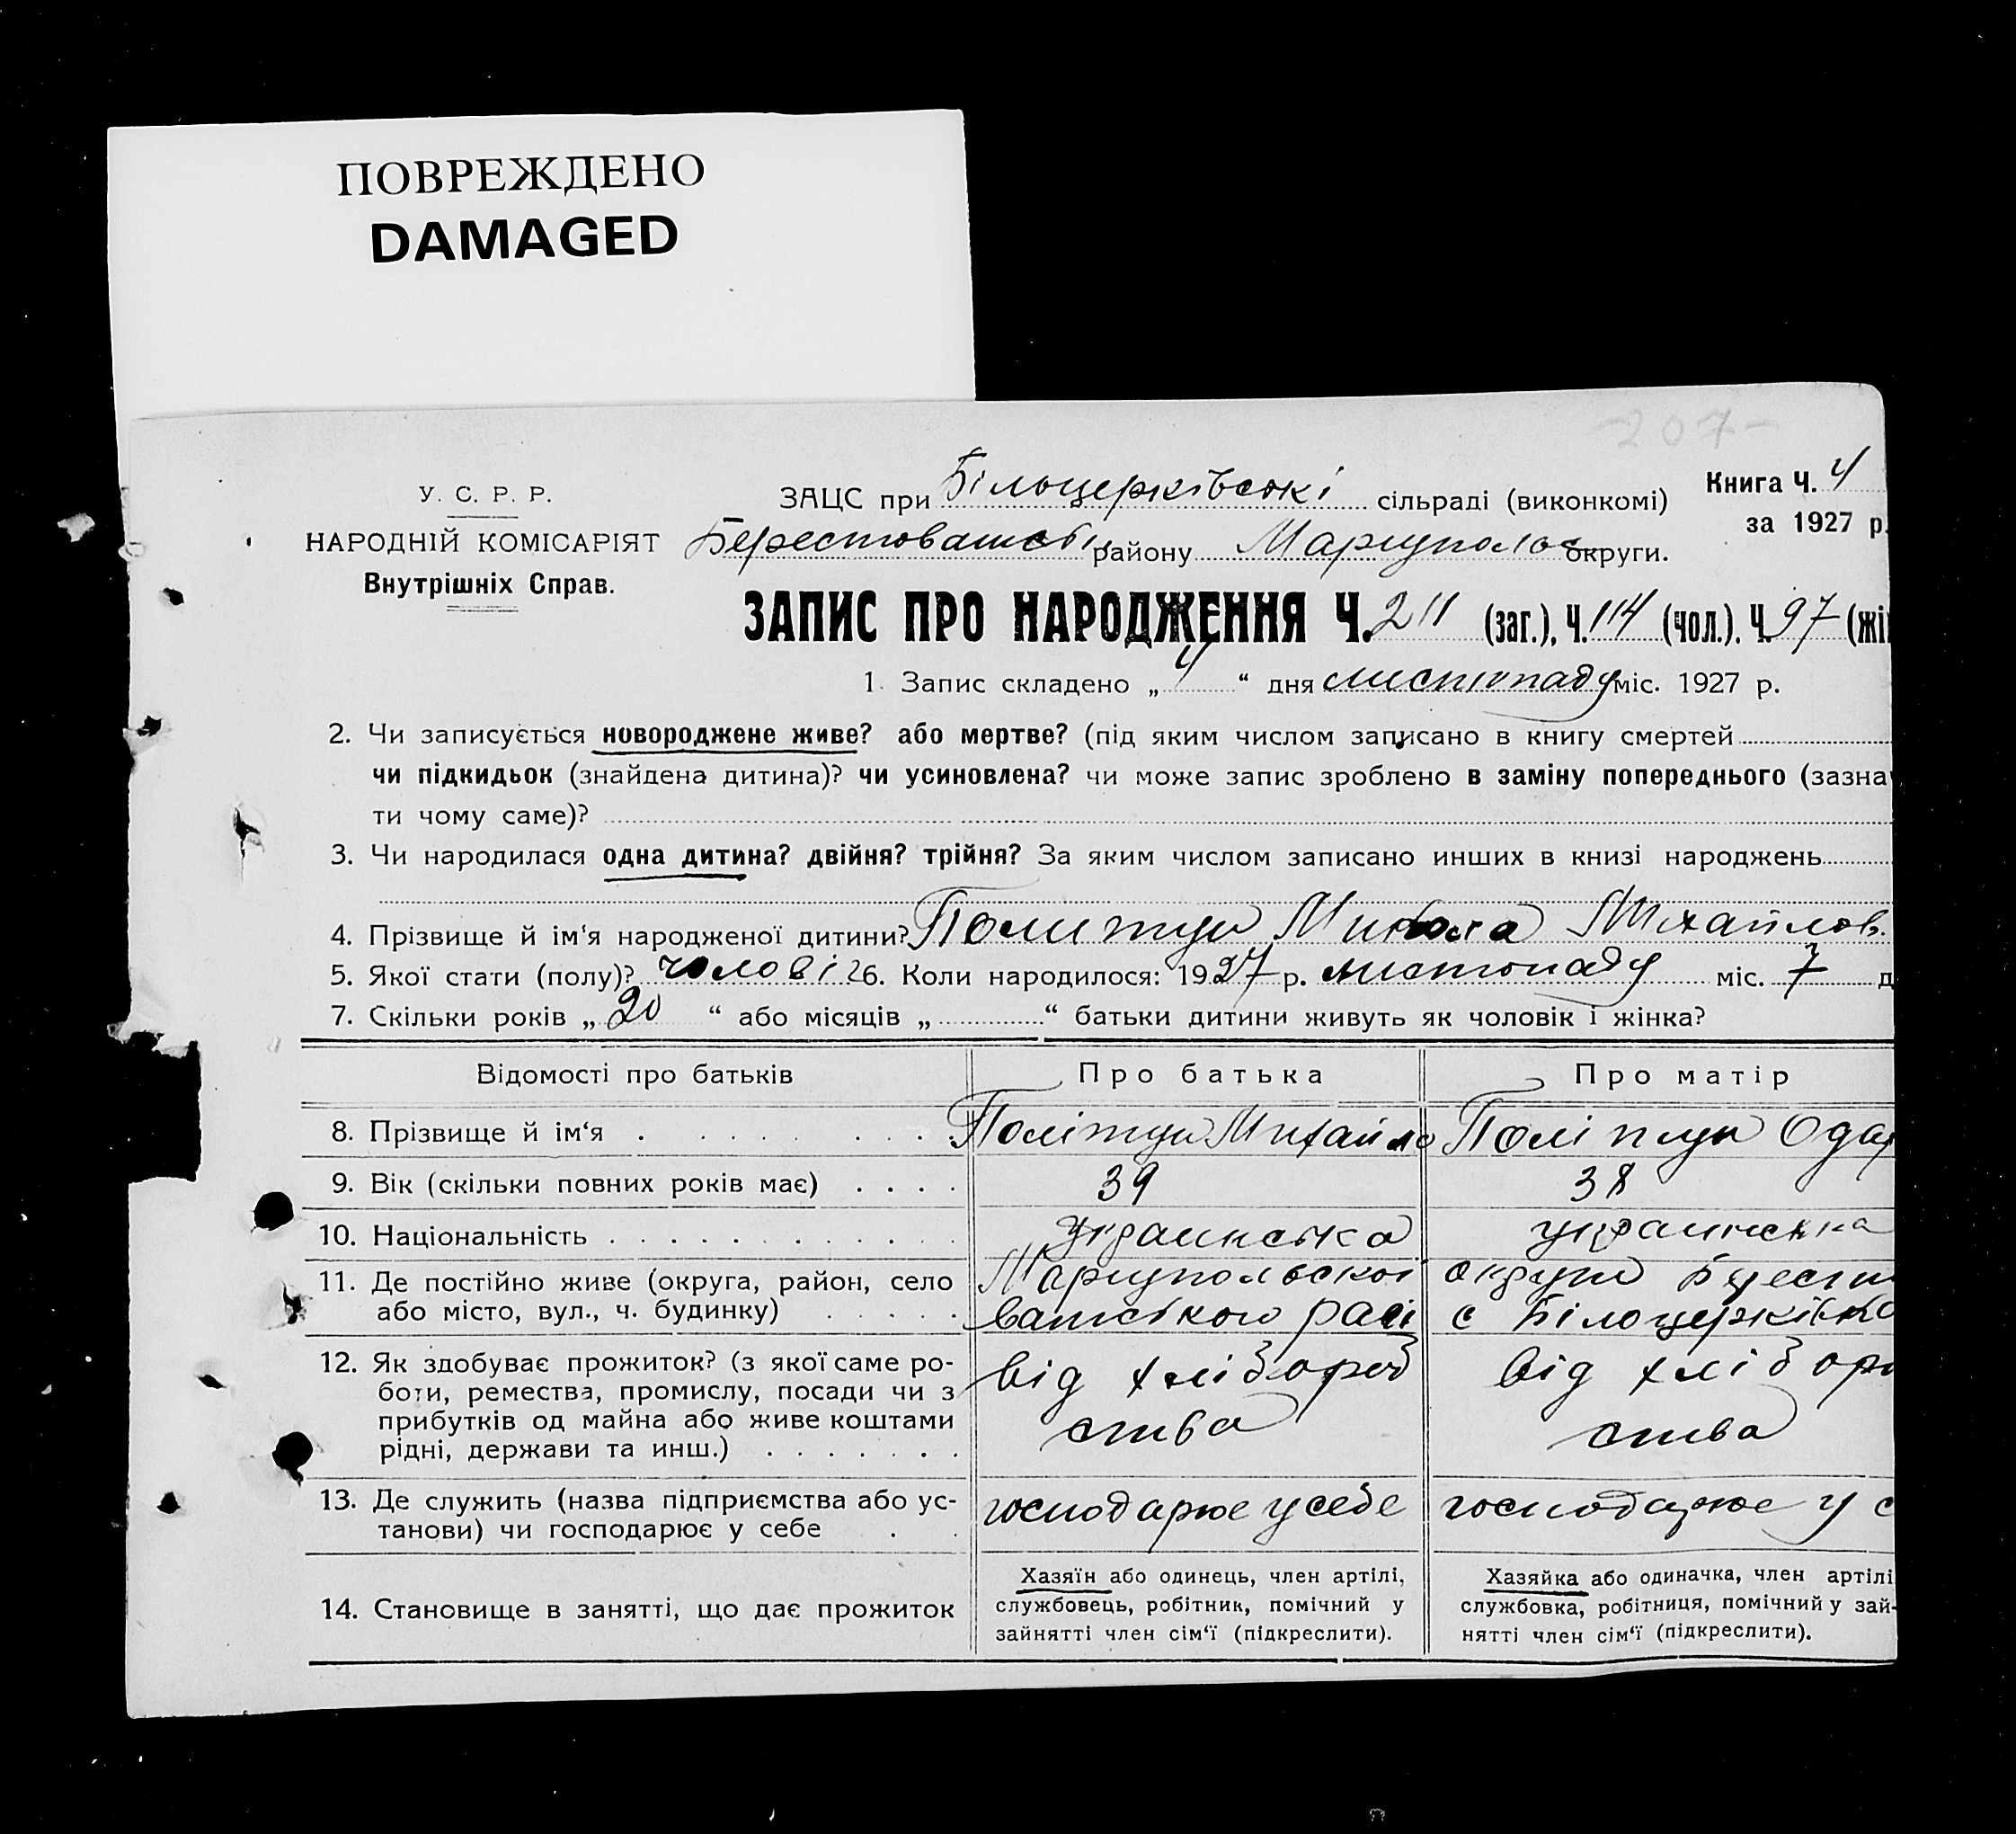 ПОВРЕЖДЕНО
DAMAGED
-207-
У. С. Р. Р.
НАРОДНІЙ КОМІСАРІЯТ
Внутрішніх Справ.
ЗАЦС при Білоцерківські сільраді (виконкомі)
Книга Ч. 4
за 1927 р.
району Маріупольс округи.
ЗАПИС ПРО НАРОДЖЕННЯ Ч. 211 (заг.), Ч. 114 (чол.). Ч. 97 (жі
1. Запис складено „ 4 “ дня листопаду міс. 1927 р.
2. Чи записується новороджене живе? або мертве? (під яким числом записано в книгу смертей
чи підкидьок (знайдена дитина)? чи усиновлена? чи може запис зроблено в заміну попереднього (зазна
ти чому саме)?
3. Чи народилася одна дитина? двійня? трійня? За яким числом записано инших в книзі народжень
4. Прізвище й ім‘я народженої дитини? Микола Михайлов.
5. Якої стати (полу)? чоловіч 6. Коли народилося: 1927 р. листопаду міс. 7 д
7. Скільки років „ 20 “ або місяців „ “ батьки дитини живуть як чоловік і жінка?
Відомості про батьків Про батька Про матір
8. Прізвище й ім‘я Михайло Одар
9. Вік (скільки повних років має) 39 38
10. Національність украинська украинська
11. Де постійно живе (округа, район, село Маріупольскої округи
або місто, вул., ч. будинку) ватського с Білоцерківка
12. Як здобуває прожиток? (з якої саме ро- від хлібороб від хлібороб
боти, ремества, промислу, посади чи з
прибутків од майна або живе коштами ства ства
рідні, держави та инш.)
13. Де служить (назва підприємства або ус- господарює у себе господарює у с
танови) чи господарює у себе
Хазяїн або одинець, член артілі, Хазяйка або одиначка, член артілі
14. Становище в занятті, що дає прожиток службовець, робітник, помічний у службовка, робітниця, помічний у зай-
зайнятті член сім‘ї (підкреслити). нятті член сім‘ї (підкреслити).